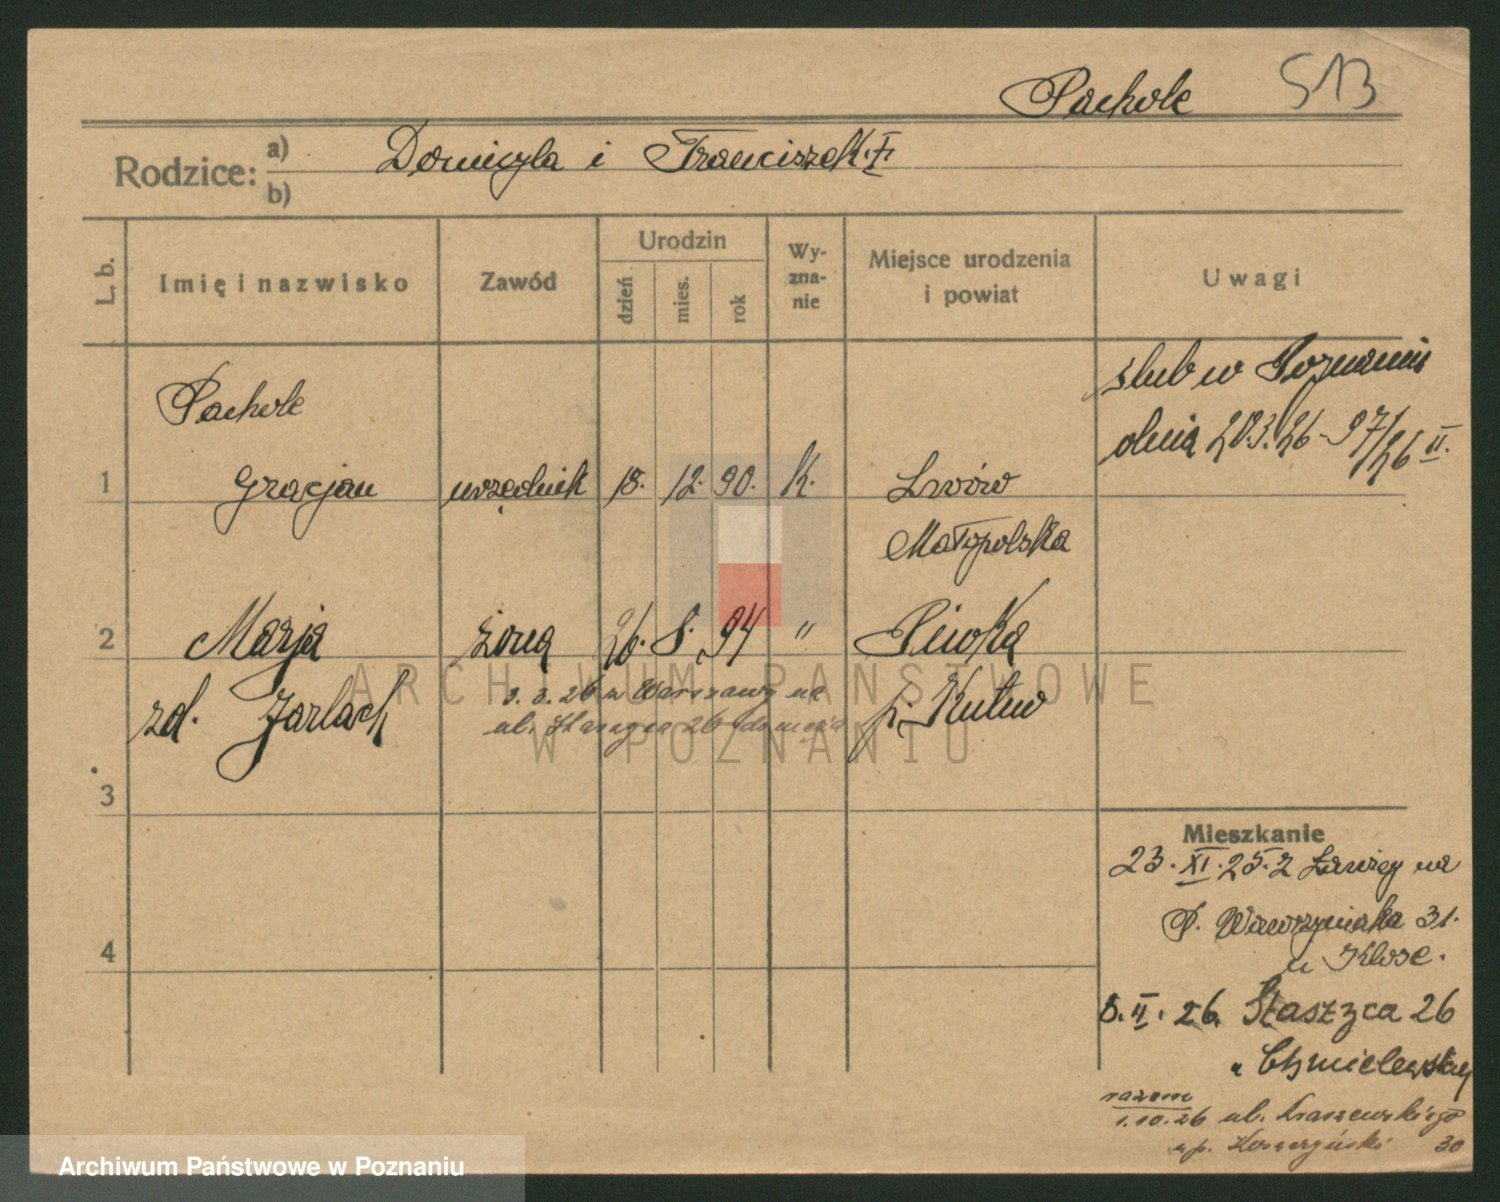 Pachole 513
Rodzice: a) Domicyla i Franciszek
b)
L. b. Imię i nazwisko Zawód Urodzin dzień mies. rok Wyznanie Miejsce urodzenia i powiat Uwagi
ślub w Poznaniu
dnia 20.3.26 - 97/26 II.
Pachole
1 Gracjan urzędnik 18. 12. 90. k. Lwów
Małopolska
2 Marja żona 26. 8. 94 " Piwka
zd. Jarlach p. Kutno
3.3.26 z Warszawy na
ul. Staszyca 26
3
4
Mieszkanie
23.XI.25. z Ławicy na
P. Wawrzyniaka 31.
u Klose.
8.II.26. Staszyca 26
u Chmielewskiej
razem
1.10.26 ul. Kraszewskiego
u p. 30
ARCHIWUM PAŃSTWOWE
W POZNANIU
Archiwum Państwowe w Poznaniu